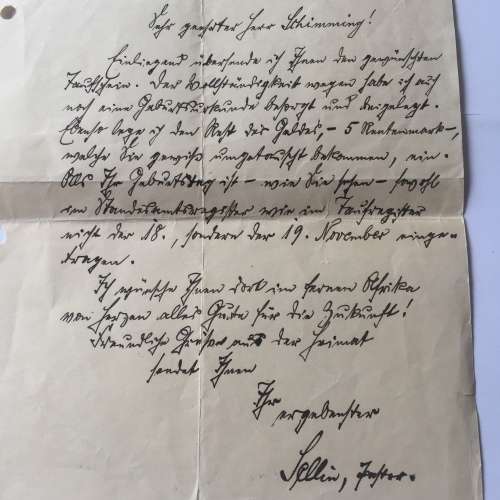 Sehr geehrter Herr Schimming!
Einliegend übersende ich Ihnen den gewünschten
Taufschein. Der Vollständigkeit wegen habe ich auch
noch eine Geburtsurkunde besorgt und beigelegt.
Ebenso lege ich den Rest des Geldes, - 5 Rentenmark -,
welche Sie gewiß umgetauscht bekommen, ein.
Als Ihr Geburtstag ist - wie Sie sehen - sowohl
im Standesamtsregister wie im Taufregister
nicht der 18., sondern der 19. November einge-
tragen.
Ich wünsche Ihnen dort im fernen Afrika
von Herzen alles Gute für die Zukunft!
Freundliche Grüße aus der Heimat
sendet Ihnen
Ihr
ergebenster
Sellin, Pastor.